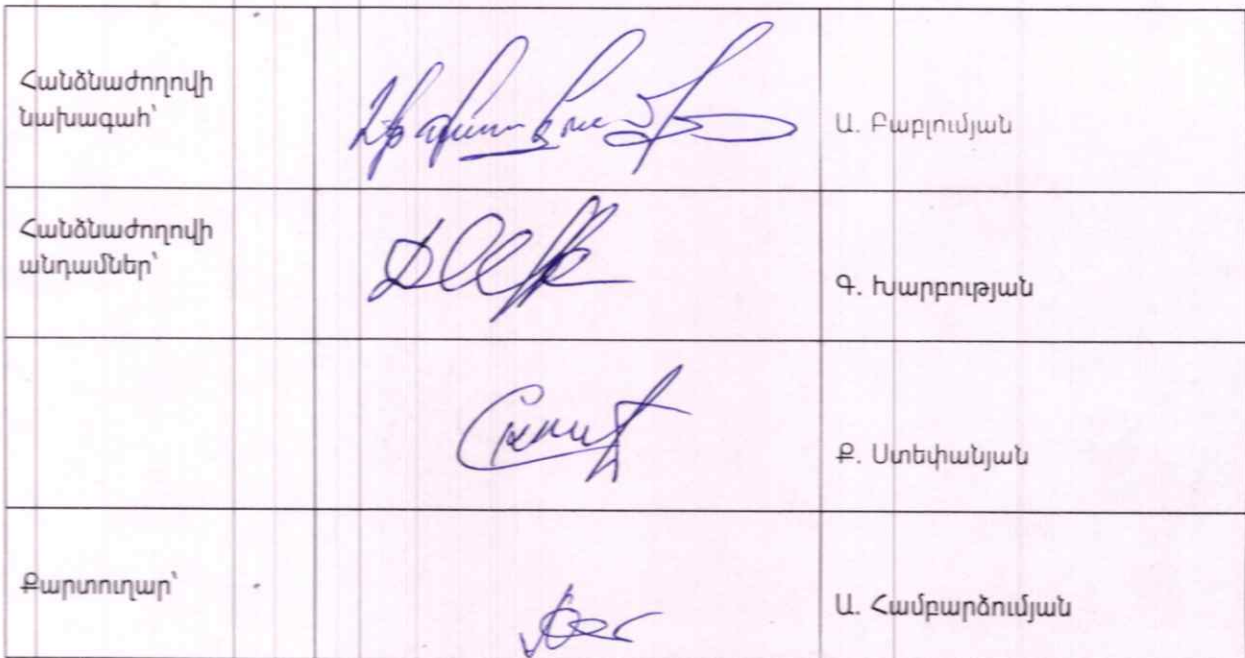 Հանձնաժողովի
նախագահ՝
Ա. Բաբլումյան
Հանձնաժողովի
անդամներ՝
Գ. Խարբության
Ք. Ստեփանյան
Քարտուղար՝
Ա. Համբարձումյան